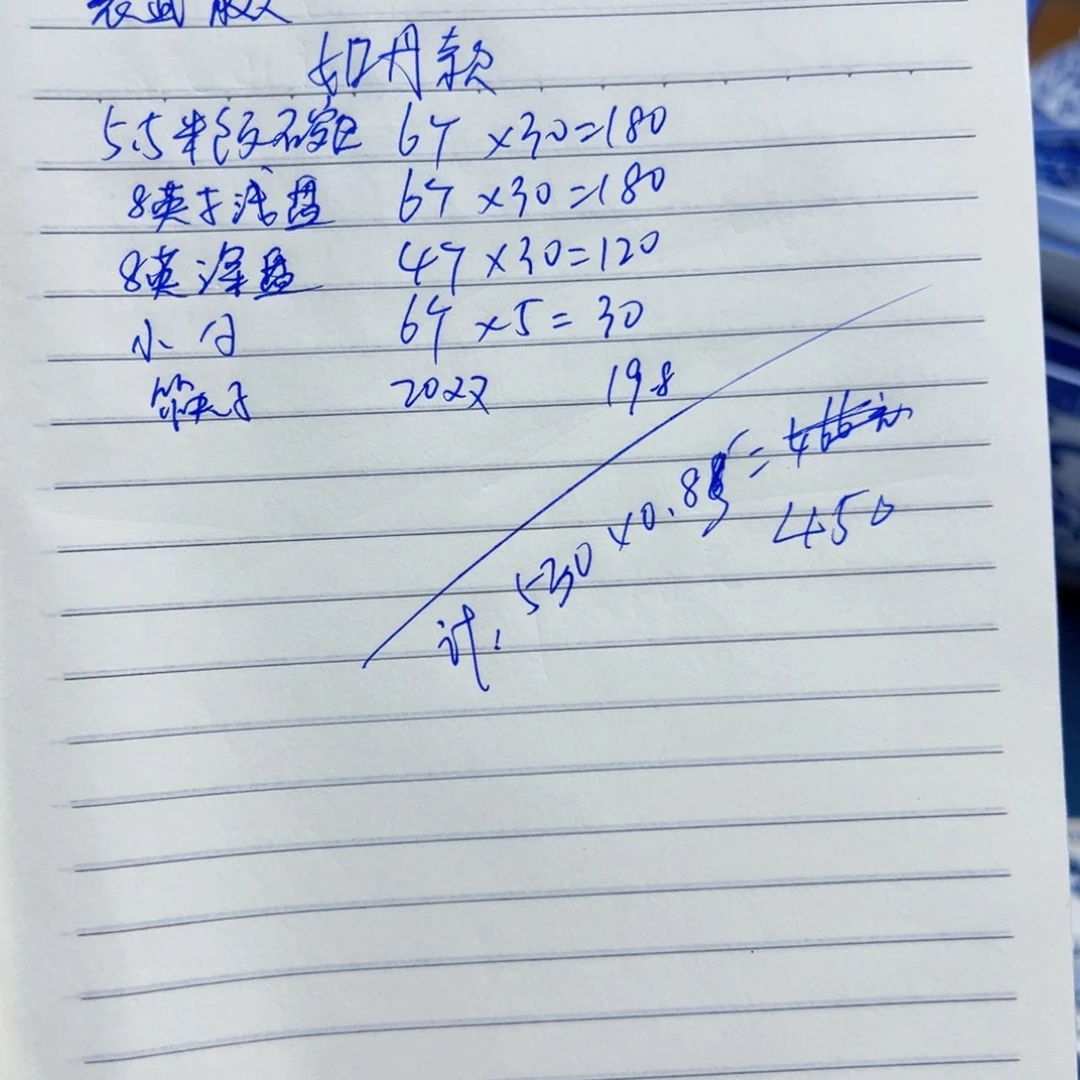 如丹款
5.5半饭碗 6个 ×30=180
8英寸浅盘 6个 ×30=180
8英深盘 4个 ×30=120
小勺 6个 ×5=30
筷子 20双 19.8
计: 530 ×0.85=
450